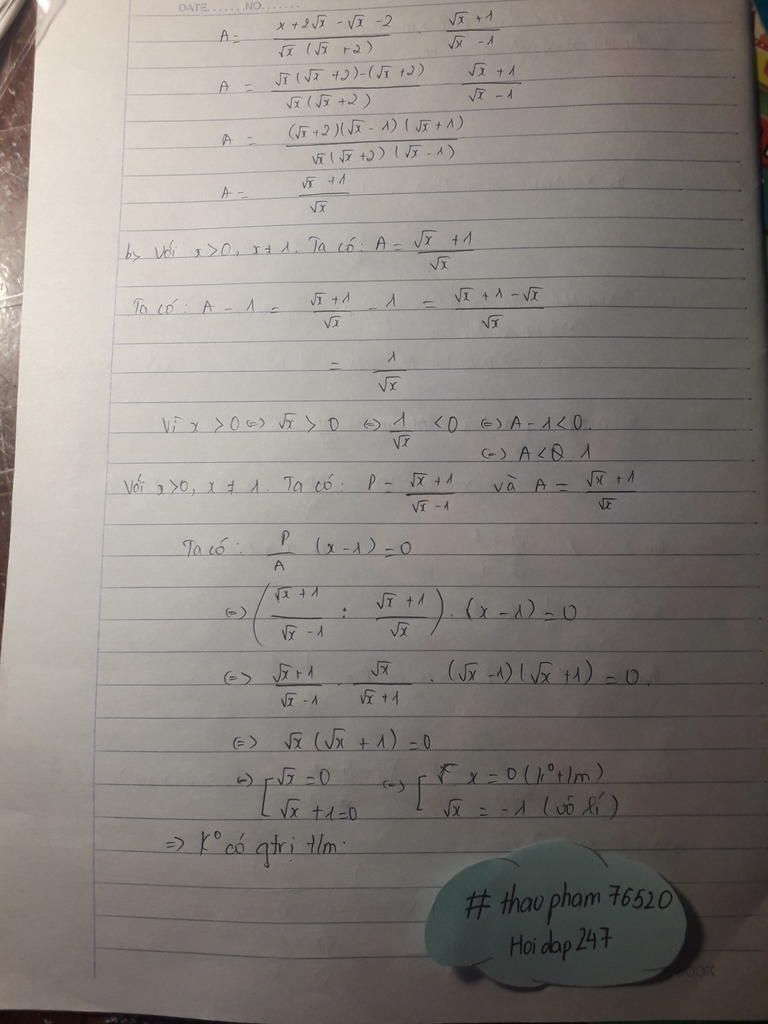 DATE.......NO.......
A = \frac{x + 2√x - √x - 2}{√x (√x + 2)} . \frac{√x + 1}{√x - 1}
A = \frac{√x (√x + 2) - (√x + 2)}{√x (√x + 2)} \frac{√x + 1}{√x - 1}
A = \frac{(√x + 2)(√x - 1)(√x + 1)}{√x (√x + 2)(√x - 1)}
A = \frac{√x + 1}{√x}
b> Với x > 0, x ≠ 1. Ta có: A = \frac{√x + 1}{√x}
Ta có: A - 1 = \frac{√x + 1}{√x} - 1 = \frac{√x + 1 - √x}{√x}
= \frac{1}{√x}
Vì x > 0 <=> √x > 0 <=> \frac{1}{√x} < 0 <=> A - 1 < 0.
<=> A < 1
Với x > 0, x ≠ 1. Ta có: P = \frac{√x + 1}{√x - 1} và A = \frac{√x + 1}{√x}
Ta có: \frac{P}{A} (x - 1) = 0
<=> (\frac{√x + 1}{√x - 1} : \frac{√x + 1}{√x}) . (x - 1) = 0
<=> \frac{√x + 1}{√x - 1} . \frac{√x}{√x + 1} . (√x - 1)(√x + 1) = 0.
<=> √x (√x + 1) = 0
<=> [ √x = 0 <=> [ x = 0 (k° t/m)
√x + 1 = 0 √x = -1 (vô lí)
=> K° có gtrị t/m.
# thaopham76520
Hoidap247